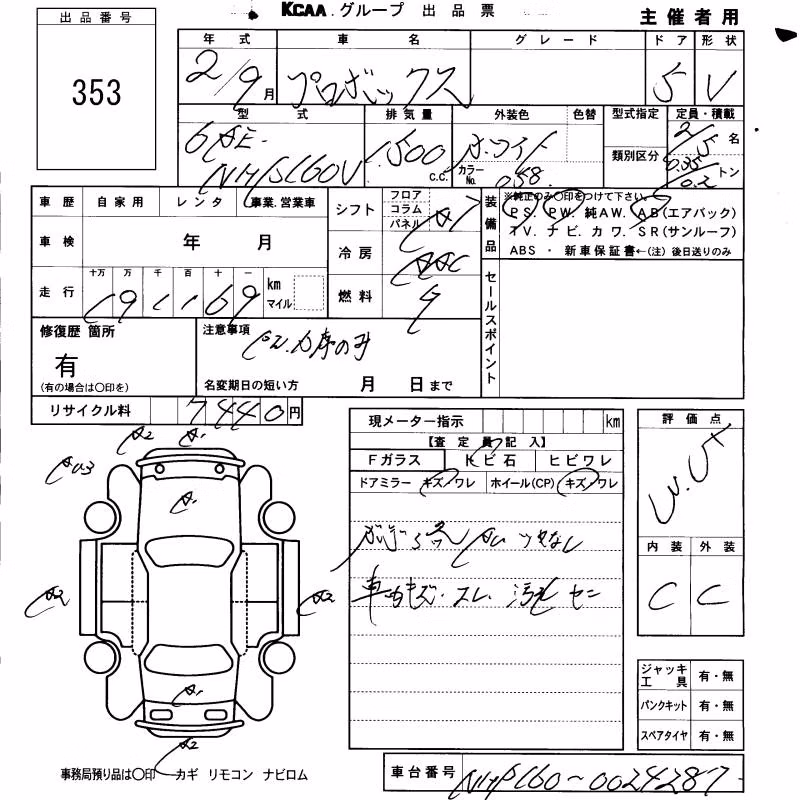 出品番号
353
KCAA グループ 出品票
主催者用
年式 車名 グレード ドア 形状
2/9月 プロボックス 5 V
型式 排気量 外装色 色替 型式指定 定員・積載
6AE- NHP160V 1500 c.c. ホワイト カラーNo. 058 類別区分 2/5 名 0.35/0.2 トン
車歴 自家用 レンタ 事業.営業車
車検 年 月
走行 十万 万 千 百 十 一 km マイル
シフト フロア コラム パネル AT
冷房 AAC
燃料 G
装備品 ※純正のみ〇印をつけて下さい。
PS. PW. 純AW. AB(エアバック)
TV. ナビ. カワ. SR(サンルーフ)
ABS ・ 新車保証書←(注)後日送りのみ
セールスポイント
修復歴 箇所
有
(有の場合は〇印を)
注意事項
名変期日の短い方 月 日まで
リサイクル料 7440円
現メーター指示 km
【査定員記入】
Fガラス トビ石 ヒビワレ
ドアミラー キズ/ワレ ホイール(CP) キズ/ワレ
車内キズ.スレ.汚れ
評価点
内装 外装
C C
A2 A1
A1
A2 A2
A1
A2
ジャッキ工具 有・無
パンクキット 有・無
スペアタイヤ 有・無
事務局預り品は〇印 カギ リモコン ナビロム
車台番号 NHP160~0024287